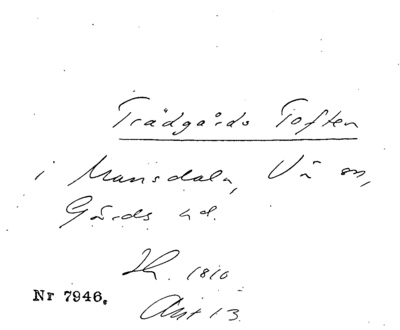 Trädgårds Toften
i Mansdala, Vä sn,
Gärds hd.
Sk. 1810
Nr 7946. Akt 13